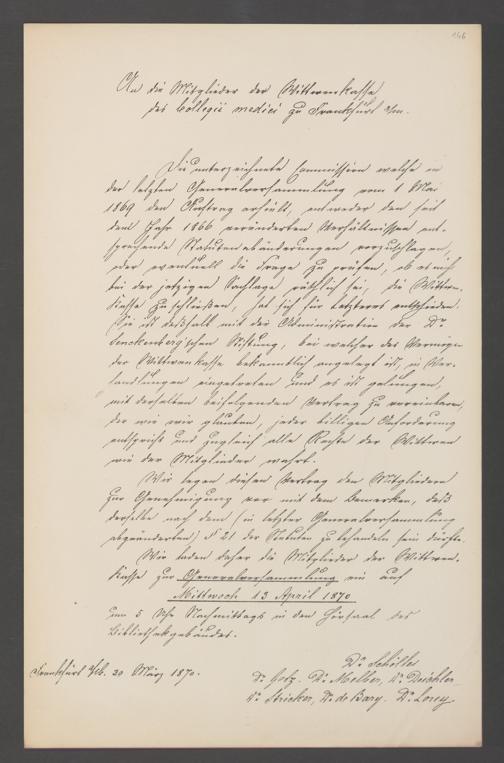 146
An die Mitglieder der Wittwenkasse
des Collegii medici zu Frankfurt a/m.
Die unterzeichnete Commission welche in
der letzten Generalversammlung vom 1 Mai
1869 den Auftrag erhielt, entweder den seit
dem Jahr 1866 veränderten Verhältnissen ent-
sprechende Statutenabänderungen vorzuschlagen,
oder eventuell die Frage zu prüfen, ob es nicht
bei der jetzigen Sachlage räthlich sei, die Wittwen-
kasse zu schließen, hat sich für Letzteres entschieden.
Sie ist deßhalb mit der Administration der Dr
Senckenberg'schen Stiftung, bei welcher das Vermögen
der Wittwenkasse bekanntlich angelegt ist, in Ver-
handlungen eingetreten und es ist gelungen,
mit derselben beifolgenden Vertrag zu vereinbaren,
der wie wir glauben, jeder billigen Anforderung
entspricht und zugleich alle Rechte der Wittwen
wie der Mitglieder wahrt.
Wir legen diesen Vertrag den Mitgliedern
zur Genehmigung vor mit dem Bemerken, daß
derselbe nach dem (in letzter Generalversammlung
abgeänderten) § 21 der Statuten zu behandeln sein dürfte.
Wir laden daher die Mitglieder der Wittwen-
kasse zur Generalversammlung ein auf
Mittwoch 13 April 1870
um 5 Uhr Nachmittags in den Hörsaal des
Bibliothekgebäudes.
Frankfurt a/M. 20 März 1870.
Dr Schölles
Dr. Dr. Melber, Dr Deichler
Dr. Stricker, Dr. de Bary. Dr. Lorey